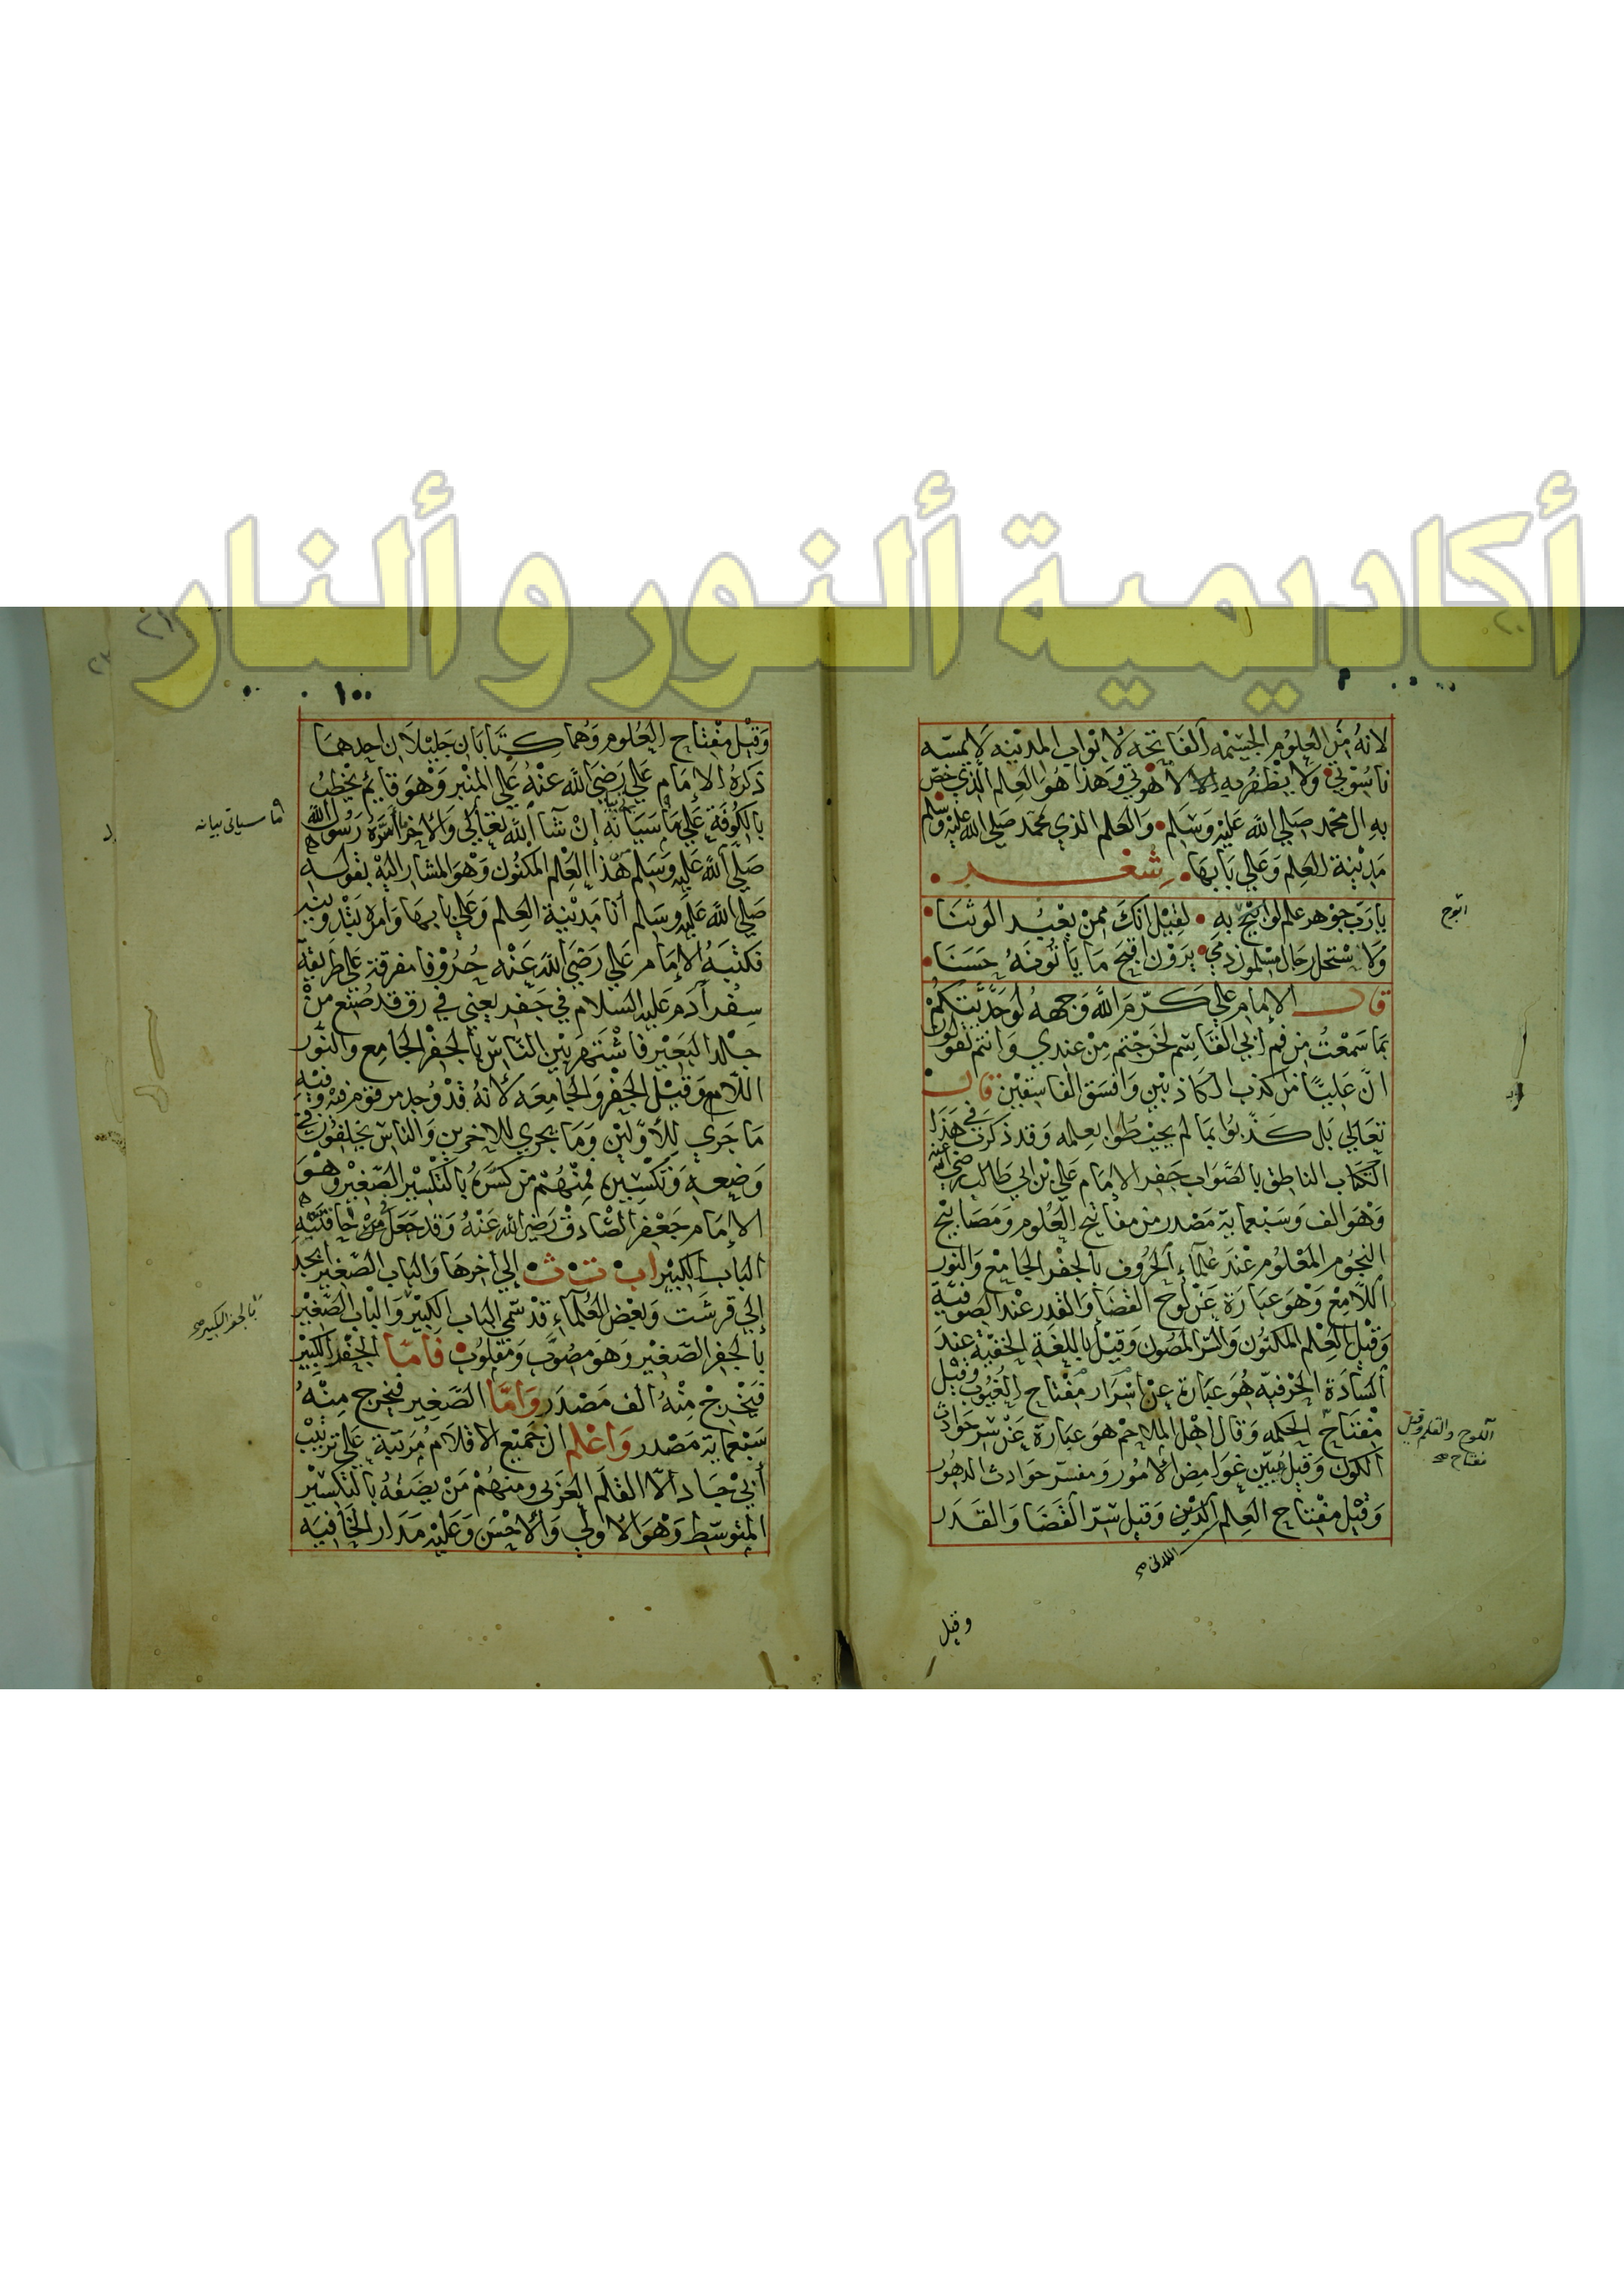 أكاديمية ألنور و ألنار
لانه من العلوم الجسيمه الفاتحه لابواب المدينه لا يمسه
ناسوتي ولا يظفر به الا لاهوتي وهذا هو العلم الذي خص
به ال محمد صلي الله عليه وسلم والعلم الذي محمد صلي الله عليه وسلم
مدينة العلم وعلي بابها شعر
يا رب جوهر علم لو ابيح به لقيل انك ممن يعبد الوثنا
ولا ستحل رجال مسلمون دمي يرون اقبح ما ياتونه حسنا
ابوح
قال الإمام علي كرّم الله وجهه لو حدّثتكم
بما سمعت من فم ابي القاسم لخرجتم من عندي وانتم تقولون
انّ عليّا من اكذب الكاذبين وافسق الفاسقين قال
تعالي بل كذّبوا بما لم يحيطوا بعلمه وقد ذكرت في هذا
الكتاب الناطق بالصّواب جفر الإمام علي بن ابي طالب رضي الله عنه
وهو الف وسبعماية مصدر من مفاتيح العلوم ومصابيح
النجوم المعلوم عند علماء الحروف بالجفر الجامع والنور
اللّامع وهو عبارة عن لوح القضا والقدر عند الصوفيّة
وقيل العلم المكنون والسّرّ المصون وقيل باللغة الخفيّة عند
السّادة الحرفيّه هو عبارة عن اسرار مفتاح الغيوب وقيل
مفتاح الحكمه وقال اهل الملاحم هو عبارة عن سر حوادث
اللوح والقلم وقيل
مفتاح صح
الكون وقيل مبيّن غوامض الامور ومفسّر حوادث الدهور
وقيل مفتاح العلم الدين وقيل سرّ القضا والقدر
اللدنى صح
وقيل
١٠٠
وقيل مفتاح العلوم وهما كتابان جليلان احدهما
ذكره الإمام علي رضي الله عنه علي المنبر وهو قايم يخطب
بالكوفة علي ما سيبانه إن شا الله تعالي والاخر اسّره رسول الله
ما سياتى بيانه
صلّي الله عليه وسلم هذا العلم المكنون وهو المشار اليه بقوله
صلي الله عليه وسلم أنا مدينة العلم وعلي بابها وامره بتدوينه
فكتبه الإمام علي رضي الله عنه حروفا مفرقة علي طريقة
سفر أدم عليه السلام في جفر يعني في رق قد صنع من
جلد البعير فاشتهر بين النّاس بالجفر الجامع والنّور
اللّامع وقيل الجفر والجامعه لانه قد وجد مرقوم فيه وفيه
ما جري للأوّلين وما يجري للاخرين والناس يختلفون في
وضعه وتكسيره فمنهم من كسّره بالتكسير الصّغير وهو
الإمام جعفر الصّادق رضي الله عنه وقد جعل من خافيته
الباب الكبير ا ب ت ث إلي اخرها والباب الصّغير ابجد
إلي قرشت وبعض العلماء قد سمّي الباب الكبير والباب الصّغير
بالجفر الكبير صح
بالجفر الصّغير وهو مصوّب ومقلوب فامّا الجفر الكبير
فيخرج منه الف مصدر وامّا الصّغير فيخرج منه
سبعماية مصدر واعلم ان جميع الاقلام مرتبة علي ترتيب
أبي جاد الّا القلم العربي ومنهم من يضعه بالتكسير
المتوسّط وهو الاولي والاحسن وعليه مدار الخافيه